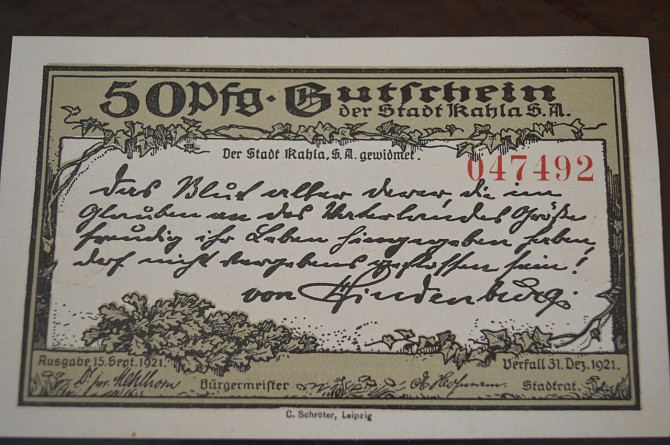 50 Pfg. Gutschein
der Stadt Kahla S.A.
Der Stadt Kahla, S.A. gewidmet.
047492
Das Blut aller derer die im
Glauben an des Vaterlandes Größe
freudig ihr Leben hingegeben haben,
darf nicht vergebens geflossen sein!
von Hindenburg.
Ausgabe 15. Sept. 1921.
Verfall 31. Dez. 1921.
Bürgermeister
Stadtrat.
C. Schröter, Leipzig